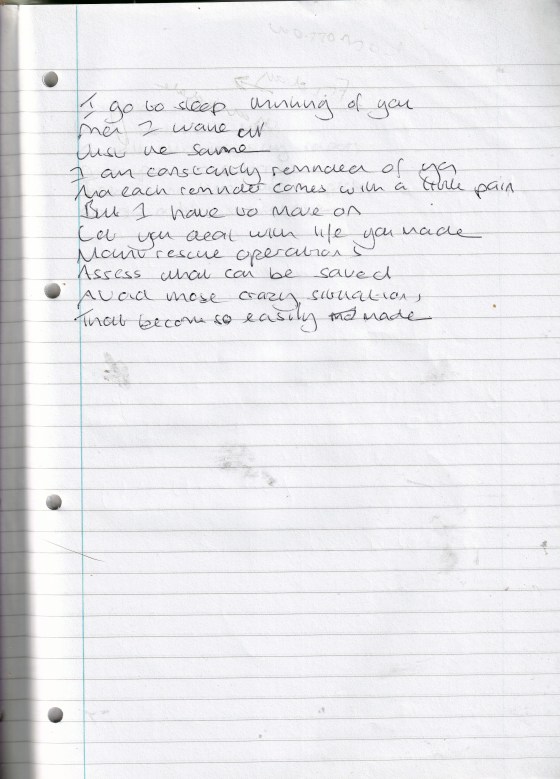 I go to sleep thinking of you
Then I wake up
Just the same
I am constantly reminded of you
And each reminder comes with a little pain
But I have to move on
Let you deal with life you made
Mount rescue operations
Assess what can be saved
Avoid those crazy situations
That become so easily made